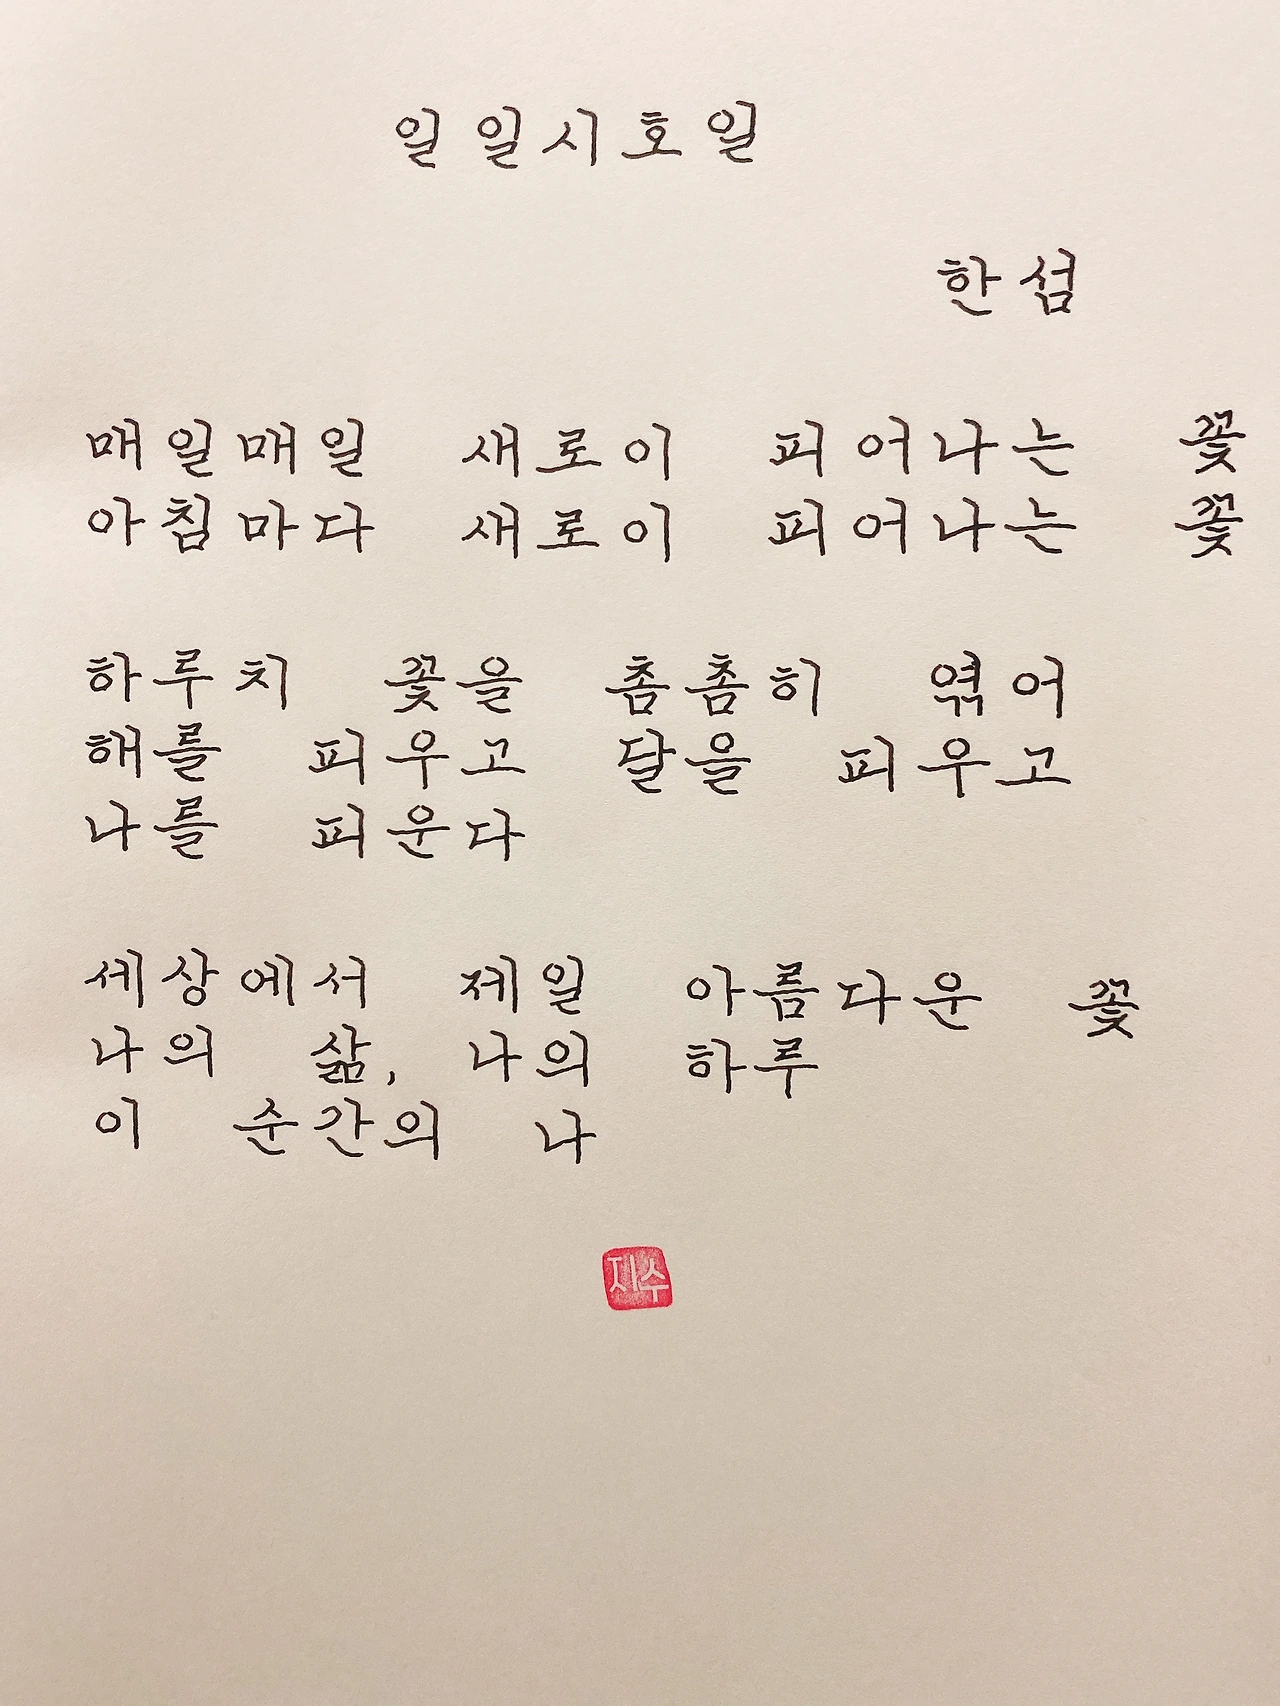 일일시호일
한섬
매일매일 새로이 피어나는 꽃
아침마다 새로이 피어나는 꽃
하루치 꽃을 촘촘히 엮어
해를 피우고 달을 피우고
나를 피운다
세상에서 제일 아름다운 꽃
나의 삶, 나의 하루
이 순간의 나
지수